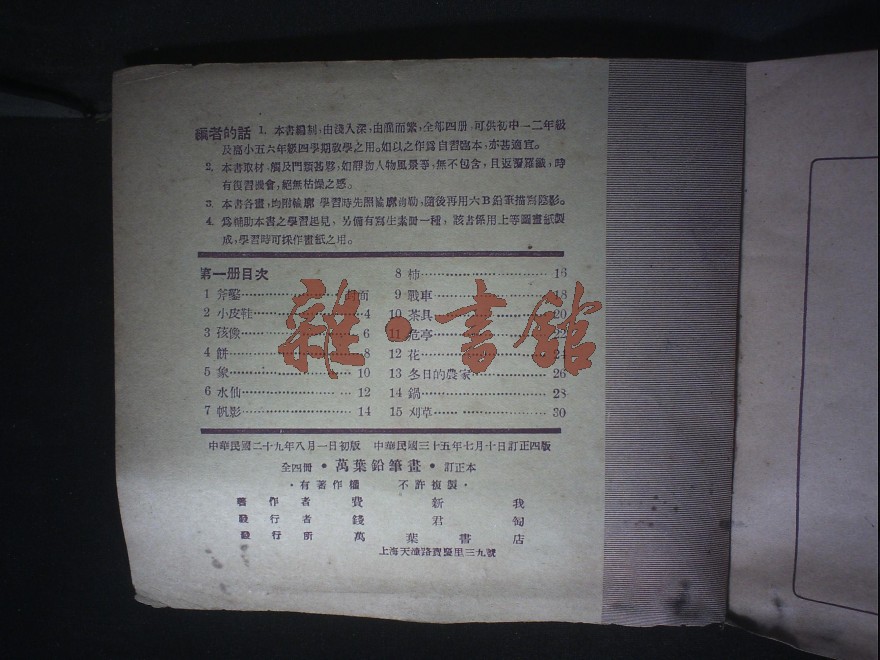 編者的話 1. 本書編制，由淺入深，由簡而繁，全部四册，可供初中一二年級
及高小五六年級四學期教學之用。如以之作爲自習臨本，亦甚適宜。
2. 本書取材，觸及門類甚夥，如靜物人物風景等，無不包含，且反覆羅織，時
有復習機會，絕無枯燥之感。
3. 本書各畫，均附輪廓 學習時先照輪廓勾勒，隨後再用六B鉛筆描寫陰影。
4. 爲輔助本書之學習起見，另備有寫生素册一種，該書係用上等圖畫紙製
成，學習時可採作畫紙之用。
第一册目次
1 斧鑿 封面
2 小皮鞋 4
3 孩像 6
4 餅 8
5 象 10
6 水仙 12
7 帆影 14
8 柿 16
9 戰車 18
10 茶具 20
11 危亭
12 花 24
13 冬日的農家 26
14 鍋 28
15 刈草 30
雜·書館
中華民國二十九年八月一日初版 中華民國三十五年七月十日訂正四版
全四冊·萬葉鉛筆畫·訂正本
·有著作權 不許複製·
著作者 費新我
發行者 錢君匋
發行所 萬葉書店
上海天潼路寶慶里三九號